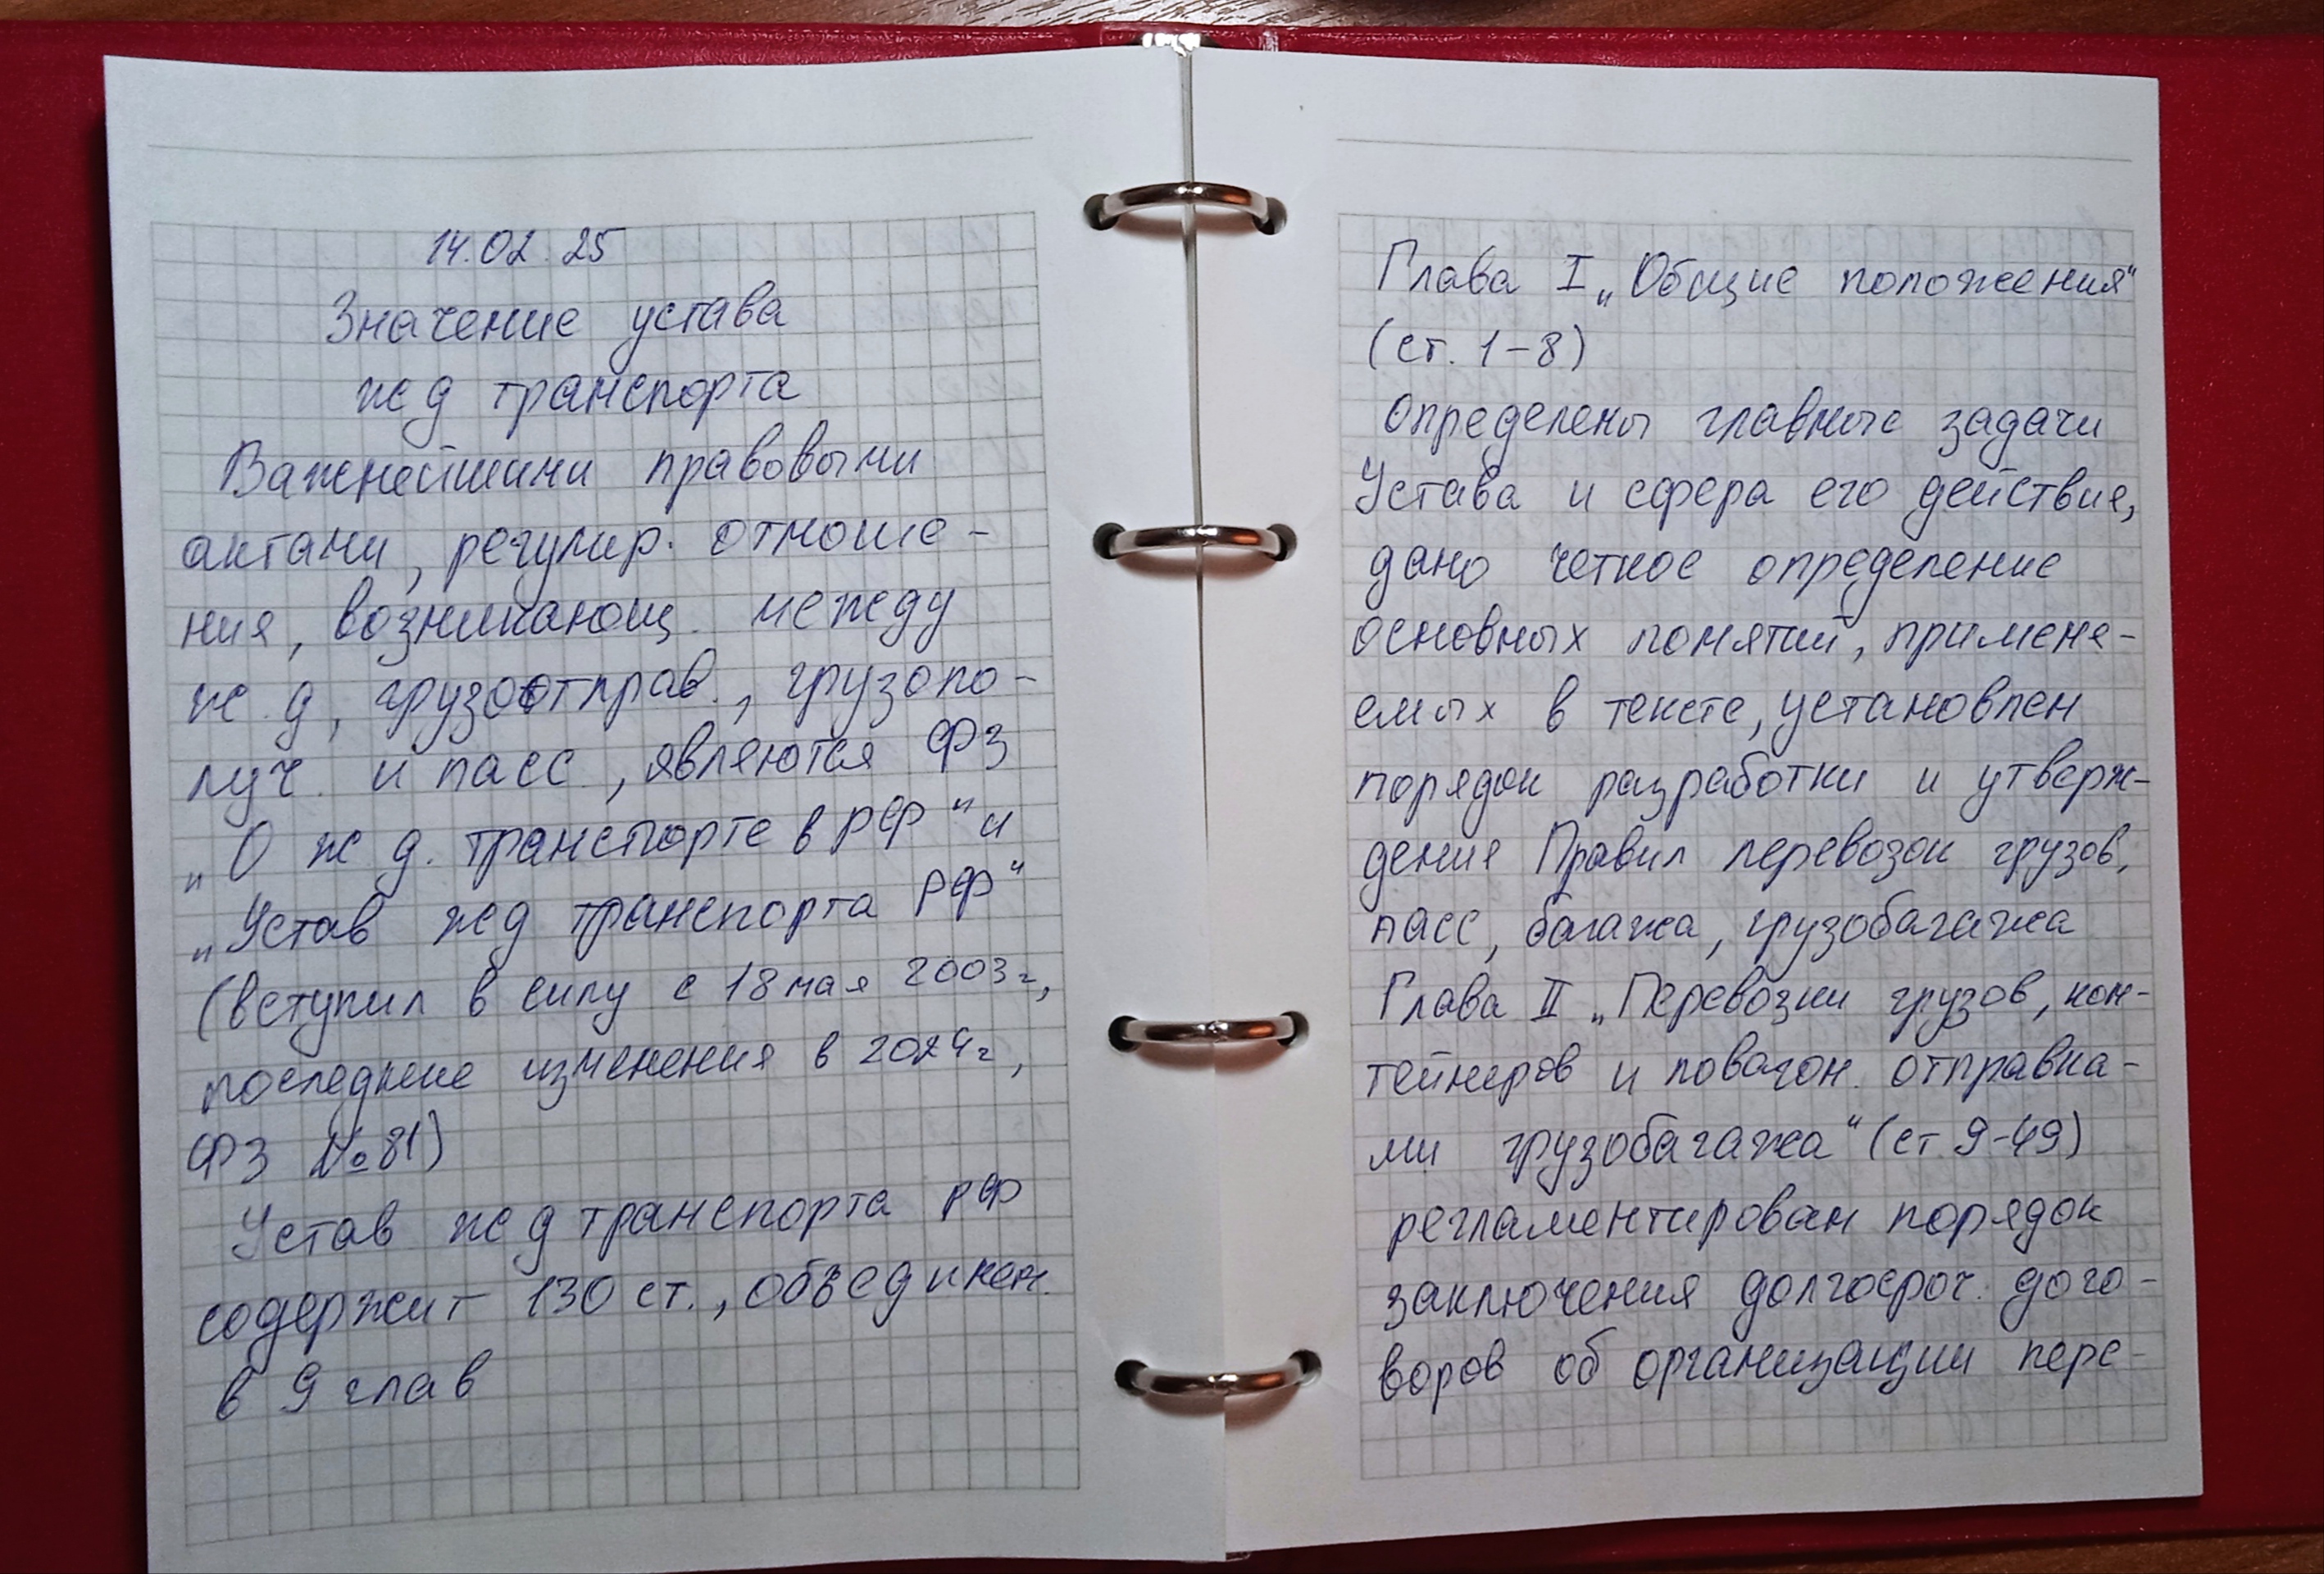 14.02.25
Значение устава
ж д транспорта
Важнейшими правовыми
актами, регулир. отноше-
ния, возникающ. между
ж.д, грузоотправ., грузопо-
луч. и пасс., являются ФЗ
„О ж д. транспорте в РФ" и
„Устав ж д транспорта РФ"
(вступил в силу с 18 мая 2003 г,
последние изменения в 2024 г,
ФЗ №81)
Устав ж д транспорта РФ
содержит 130 ст., объединен.
в 9 глав
Глава I „Общие положения"
(ст. 1-8)
Определены главные задачи
Устава и сфера его действие,
дано четкое определение
основных понятий, применя-
емых в тексте, установлен
порядок разработки и утверж-
дение Правил перевозок грузов,
пасс, багажа, грузобагажа
Глава II „Перевозки грузов, кон-
тейнеров и повагон. отправка-
ми грузобагажа" (ст. 9-49)
регламентирован порядок
заключения долгосроч. дого-
воров об организации пере-